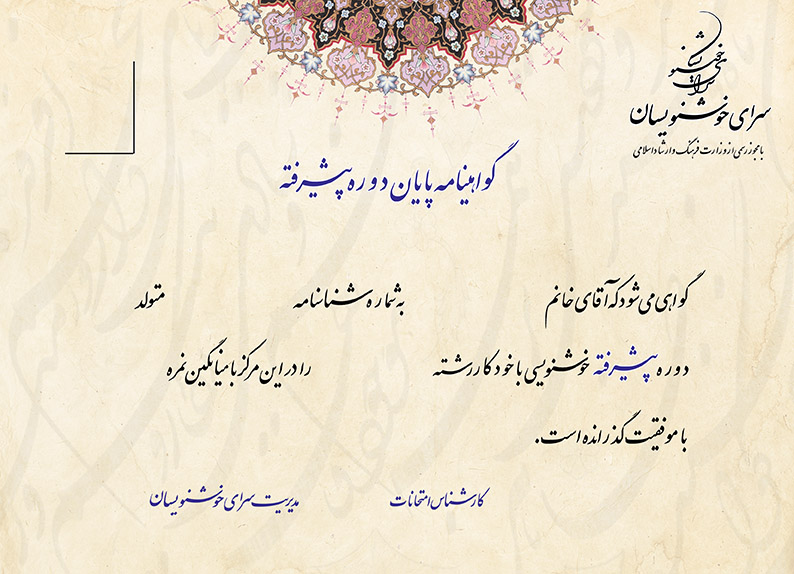 سرای خوشنویسان
سرای خوشنویسان
با مجوز رسمی از وزارت فرهنگ و ارشاد اسلامی
گواهینامه پایان دوره پیشرفته
گواهی می شود که آقای خانم به شماره شناسنامه متولد
دوره پیشرفته خوشنویسی با خودکار رشته را در این مرکز با میانگین نمره
با موفقیت گذرانده است.
کارشناس امتحانات مدیریت سرای خوشنویسان